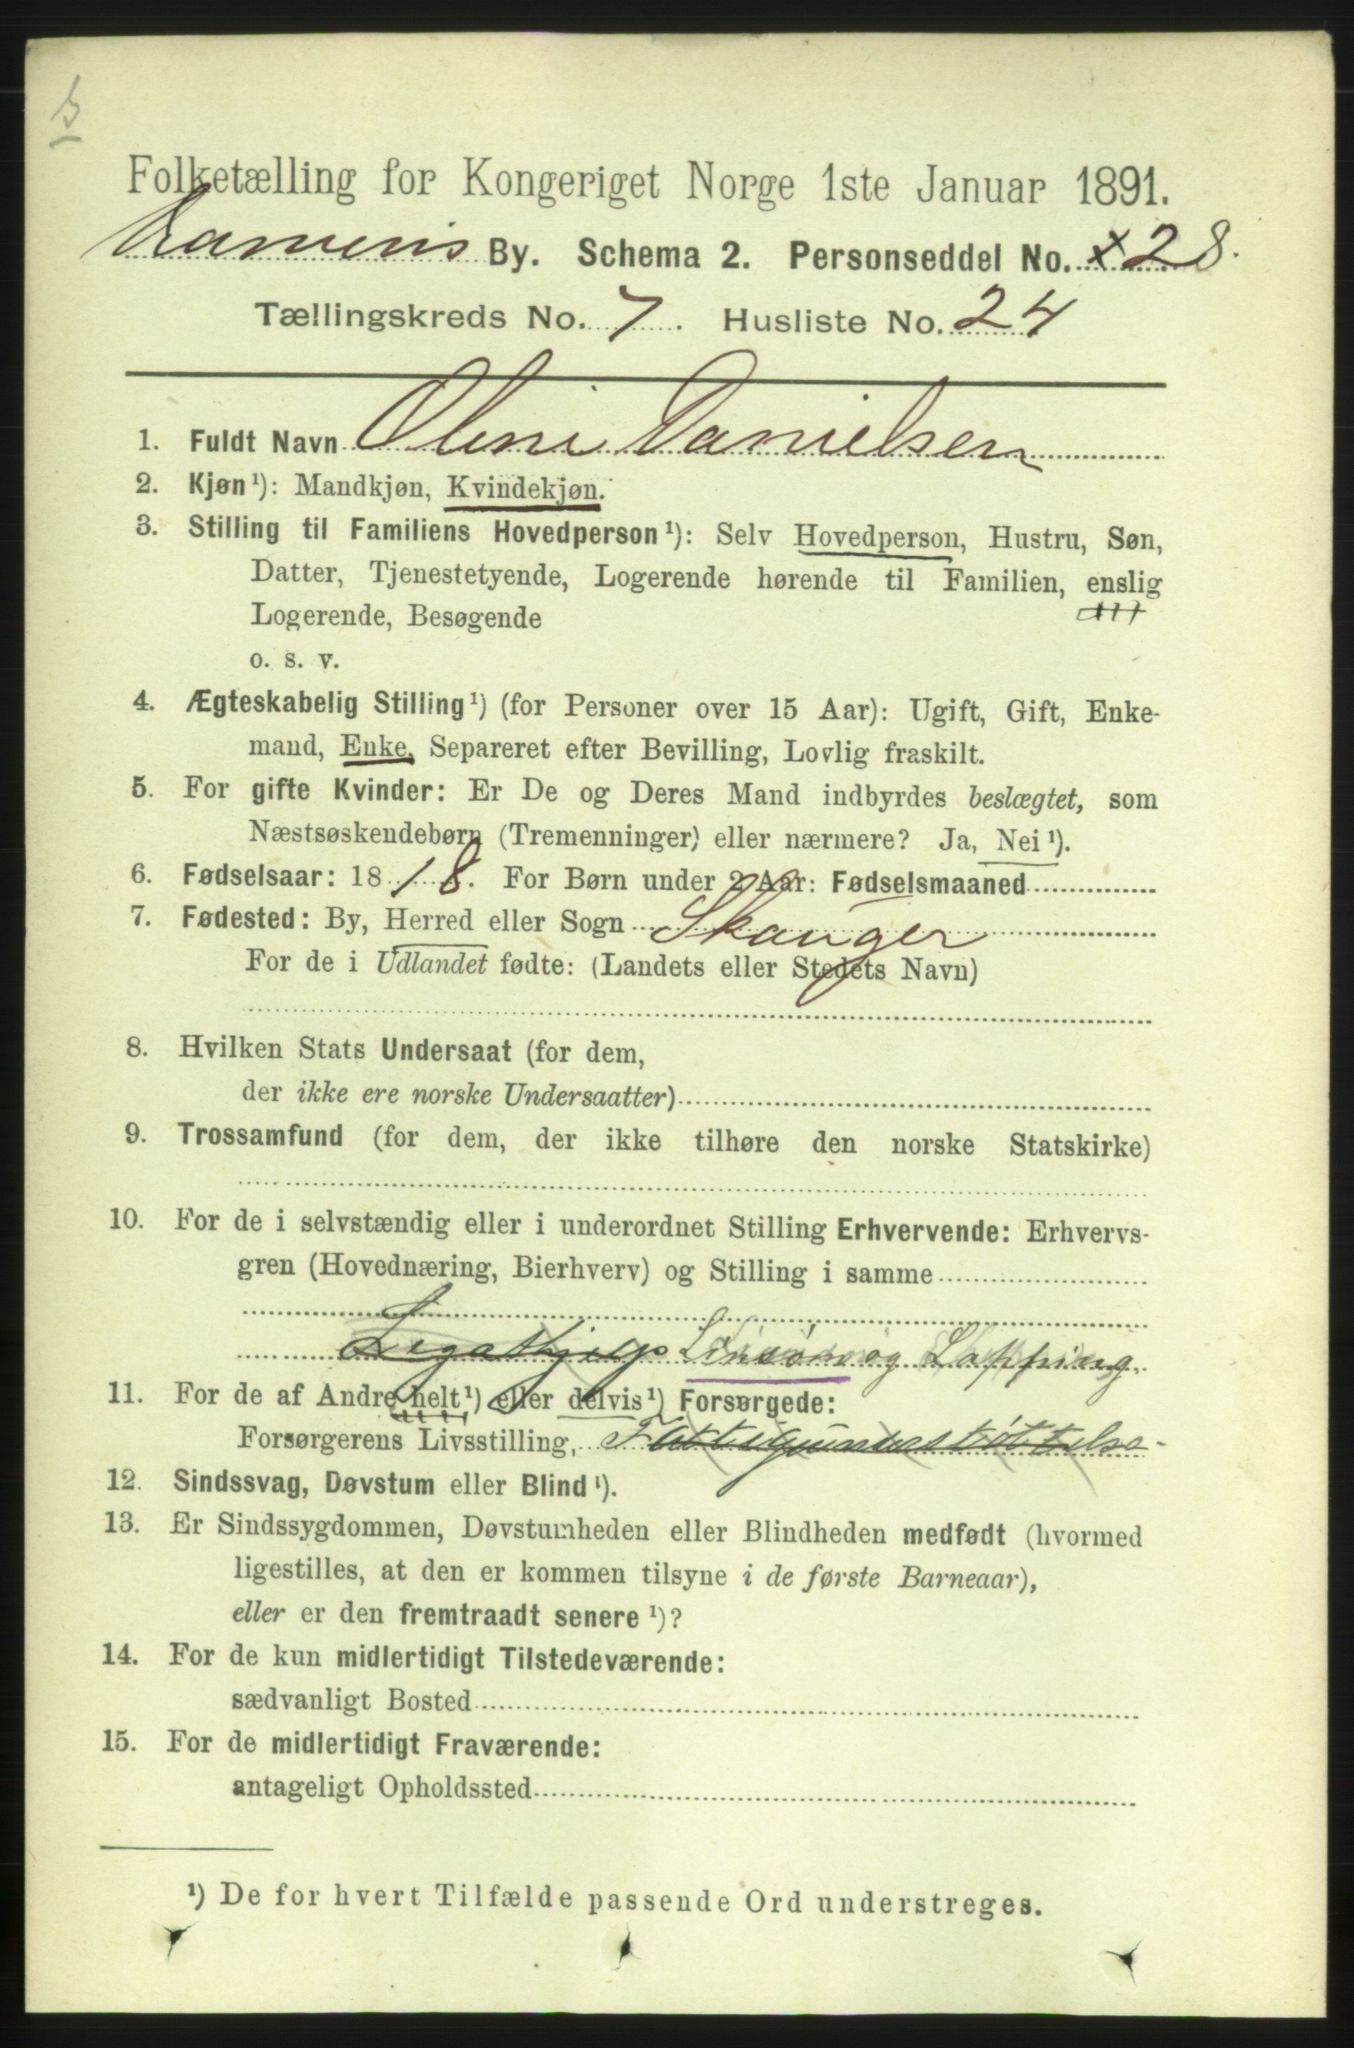 Folketælling for Kongeriget Norge 1ste Januar 1891.
By. Schema 2. Personseddel No. 28.
Tællingskreds No. 7. Husliste No. 24
1. Fuldt Navn Danielsen
2. Kjøn¹): Mandkjøn, Kvindekjøn.
3. Stilling til Familiens Hovedperson¹): Selv Hovedperson, Hustru, Søn,
Datter, Tjenestetyende, Logerende hørende til Familien, enslig
Logerende, Besøgende
o. s. v.
4. Ægteskabelig Stilling¹) (for Personer over 15 Aar): Ugift, Gift, Enke-
mand, Enke, Separeret efter Bevilling, Lovlig fraskilt.
5. For gifte Kvinder: Er De og Deres Mand indbyrdes beslægtet, som
Næstsøskendebørn (Tremenninger) eller nærmere? Ja, Nei¹).
6. Fødselsaar: 1818. For Børn under 2 Aar: Fødselsmaaned
7. Fødested: By, Herred eller Sogn Skauger
For de i Udlandet fødte: (Landets eller Stedets Navn)
8. Hvilken Stats Undersaat (for dem,
der ikke ere norske Undersaatter)
9. Trossamfund (for dem, der ikke tilhøre den norske Statskirke)
10. For de i selvstændig eller i underordnet Stilling Erhvervende: Erhvervs-
gren (Hovednæring, Bierhverv) og Stilling i samme
Linsøm og Lapping.
11. For de af Andre helt¹) eller delvis¹) Forsørgede:
Forsørgerens Livsstilling, Fattigunderstøttelse
12. Sindssvag, Døvstum eller Blind¹).
13. Er Sindssygdommen, Døvstumheden eller Blindheden medfødt (hvormed
ligestilles, at den er kommen tilsyne i de første Barneaar),
eller er den fremtraadt senere¹)?
14. For de kun midlertidigt Tilstedeværende:
sædvanligt Bosted
15. For de midlertidigt Fraværende:
antageligt Opholdssted
¹) De for hvert Tilfælde passende Ord understreges.